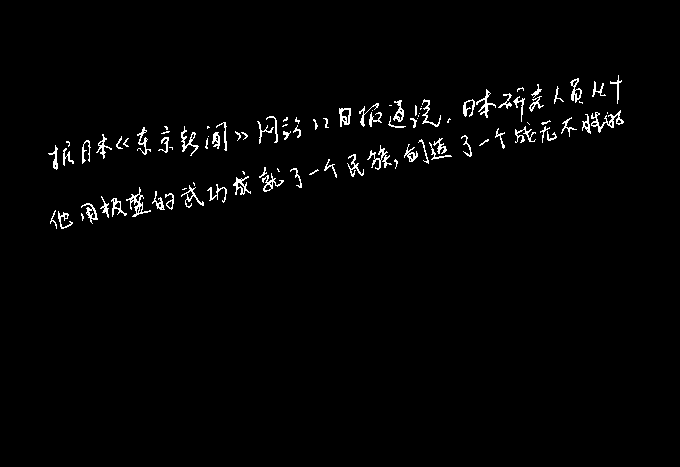 据日本《东京新闻》网站12日报道说，日本研究人员从十
他用极盛的武功成就了一个民族，创造了一个战无不胜的